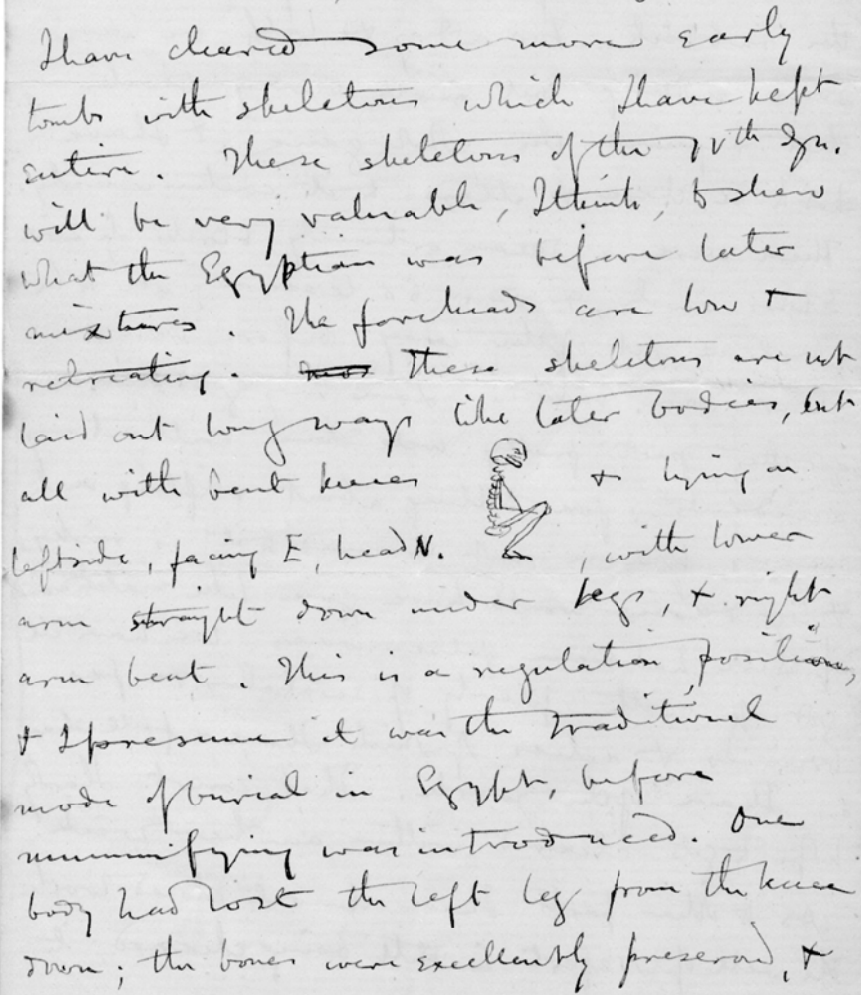 I have cleared some more early
tombs with skeletons which I have kept
entire. These skeletons of the IVth Dyn.
will be very valuable, I think, to shew
what the Egyptian was before later
mixtures. The foreheads are low +
retreating. These skeletons are not
laid out long ways like later bodies, but
all with bent knees + lying on
left side, facing E, head N. , with lower
arm straight down under legs, + right
arm bent. This is a regulation position,
+ I presume it was the traditional
mode of burial in Egypt, before
mummifying was introduced. One
body had lost the left leg from the knee
down; the bones were excellently preserved, +